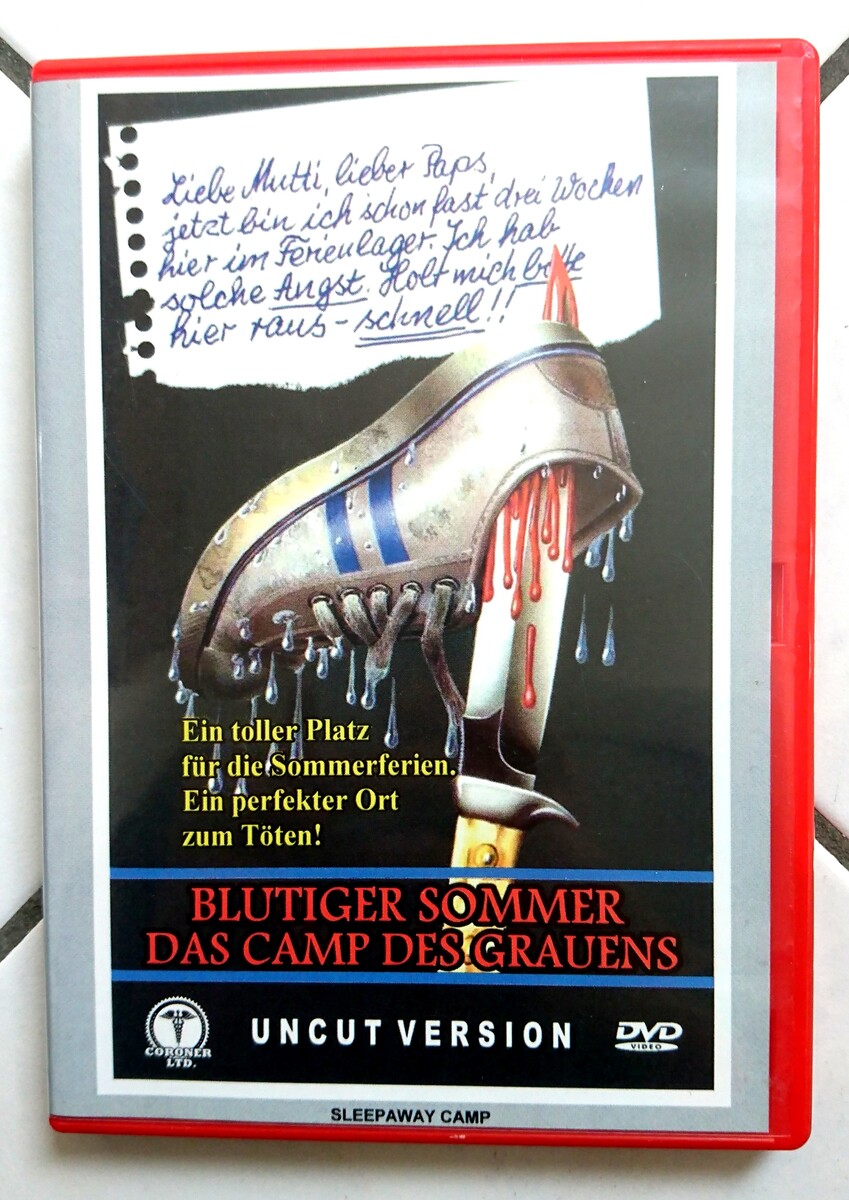 Liebe Mutti, lieber Paps,
jetzt bin ich schon fast drei Wochen
hier im Ferienlager. Ich hab
solche Angst. Holt mich bitte
hier raus - schnell!!
Ein toller Platz
für die Sommerferien.
Ein perfekter Ort
zum Töten!
BLUTIGER SOMMER
DAS CAMP DES GRAUENS
CORONER
LTD.
UNCUT VERSION
DVD
VIDEO
SLEEPAWAY CAMP